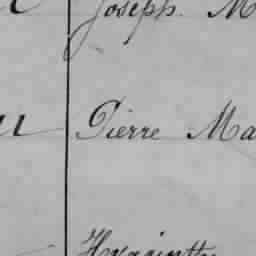 Joseph. M
Pierre Ma
Hyacinthe